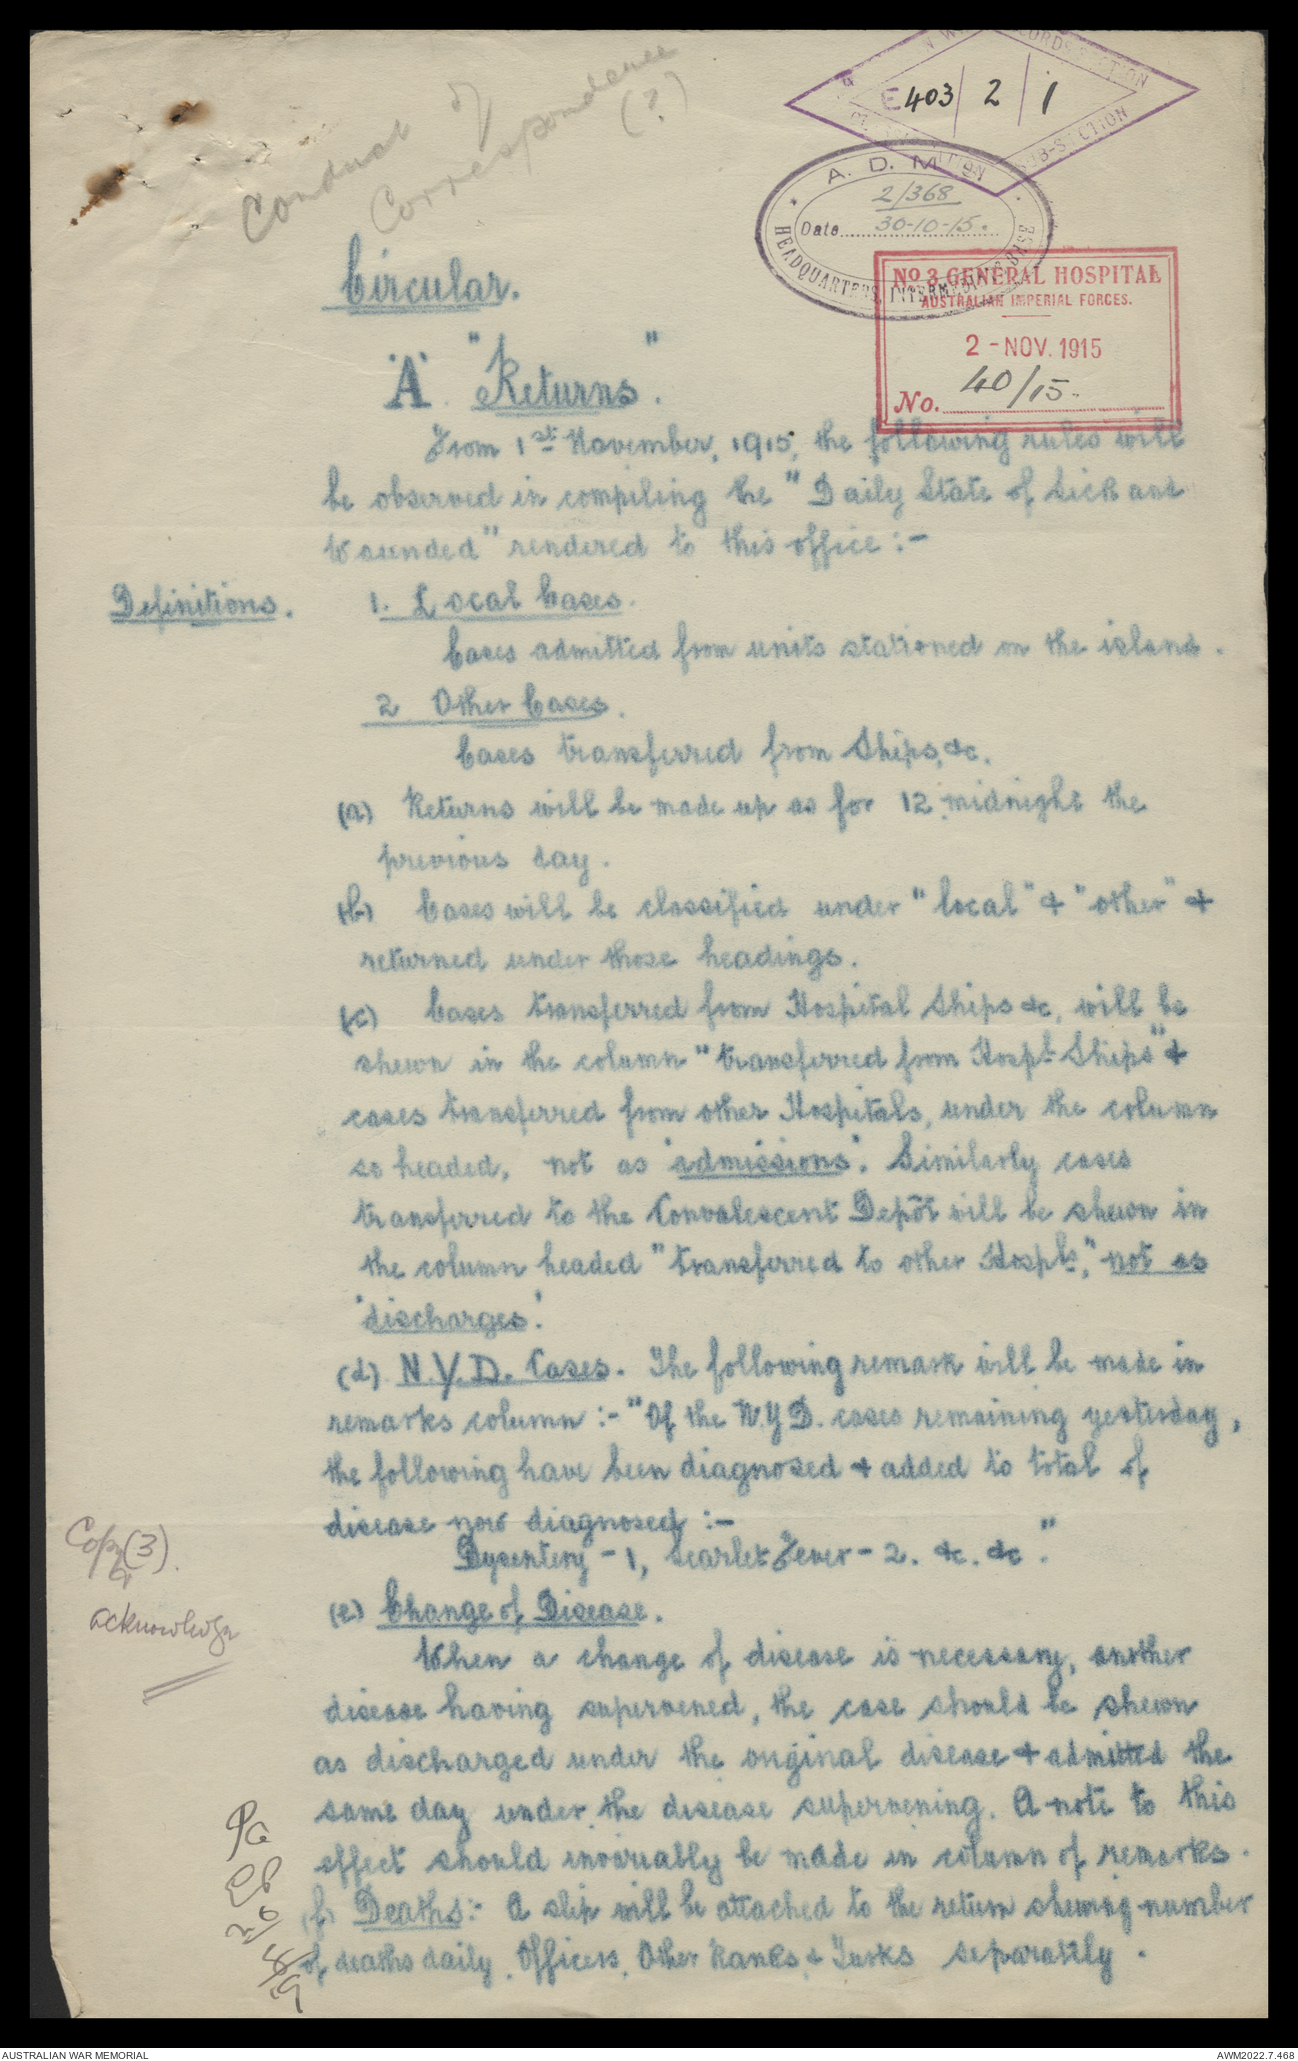 Conduct of
Correspondence
(?)
E403/2/1
A. D. M
2/368
Date 30-10-15.
HEADQUARTERS, INTERMEDIATE BASE
No 3 GENERAL HOSPITAL
AUSTRALIAN IMPERIAL FORCES.
2 - NOV. 1915
No. 40/15.
Circular.
'A' "Returns".
From 1st November, 1915, the following rules will
be observed in compiling the "Daily State of Sick and
Wounded" rendered to this office :-
Definitions.
1. Local Cases.
Cases admitted from units stationed on the island.
2 Other Cases.
Cases transferred from Ships, &c.
(a) Returns will be made up as for 12 midnight the
previous day.
(b) Cases will be classified under "local" & "other" &
returned under those headings.
(c) Cases transferred from Hospital Ships &c, will be
shewn in the column "transferred from Hospl Ships" &
cases transferred from other Hospitals, under the column
so headed, not as 'admissions'. Similarly cases
transferred to the Convalescent Depôt will be shewn in
the column headed "transferred to other Hospls," not as
'discharges'.
(d) N.Y.D. Cases. The following remark will be made in
remarks column :- "Of the N.Y.D. cases remaining yesterday,
the following have been diagnosed & added to total of
disease now diagnosed :-
Dysentery - 1, Scarlet Fever - 2. &c. &c."
Copy (3).
acknowledge
(e) Change of Disease.
When a change of disease is necessary, another
disease having supervened, the case should be shewn
as discharged under the original disease & admitted the
same day under the disease supervening. A note to this
effect should invariably be made in column of remarks.
(f) Deaths:- A slip will be attached to the return shewing number
of deaths daily, Officers, Other Ranks, & Turks separately.
AUSTRALIAN WAR MEMORIAL
AWM2022.7.468